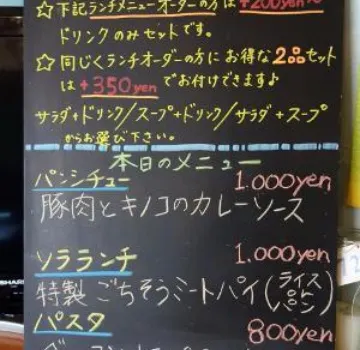 ☆下記ランチメニューオーダーの方は+200yenで
ドリンクのみセットです。
☆同じくランチオーダーの方にお得な2品セット
は+350yenでお付けできます♪
サラダ+ドリンク/スープ+ドリンク/サラダ+スープ
からお選び下さい。
本日のメニュー
パンシチュー 1.000yen
豚肉とキノコのカレーソース
ソラランチ 1.000yen
特製ごちそうミートパイ(ライスorパン)
パスタ 800yen